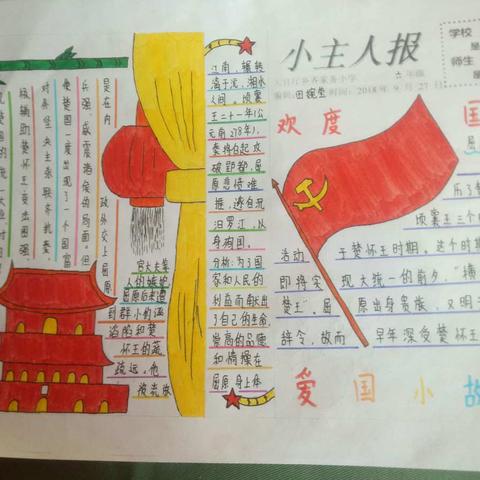 小主人报
学校
师生
六年级
时间：2018年9月27日
欢度国
历了
顷襄王三个
活动 于楚怀王时期。这个时期
即将实现大统一的前夕，“横
楚王”。屈原出身贵族，又明
辞令，故而早年深受楚怀王
爱国小故
江南，辗转
流于沅、湘水
之间。顷襄
王二十一年（公
元前278年），
秦将白起攻
破郢都，屈
原悲愤难
捱，遂自沉
汨罗江，以
身殉国。
分析：为了国
家和人民的
利益而献出
了自己的生命，
崇高的品德
和情操在
屈原身上体
是在内政外交上屈原
兵强、威震诸侯的局面。但
使楚国一度出现了一个国富
对秦坚决主张联齐抗秦
极辅助楚怀王变法图强
官大夫等
人的嫉妒
屈原后来遭
到群小的诬
陷和楚
怀王的疏
疏远，他
被流放